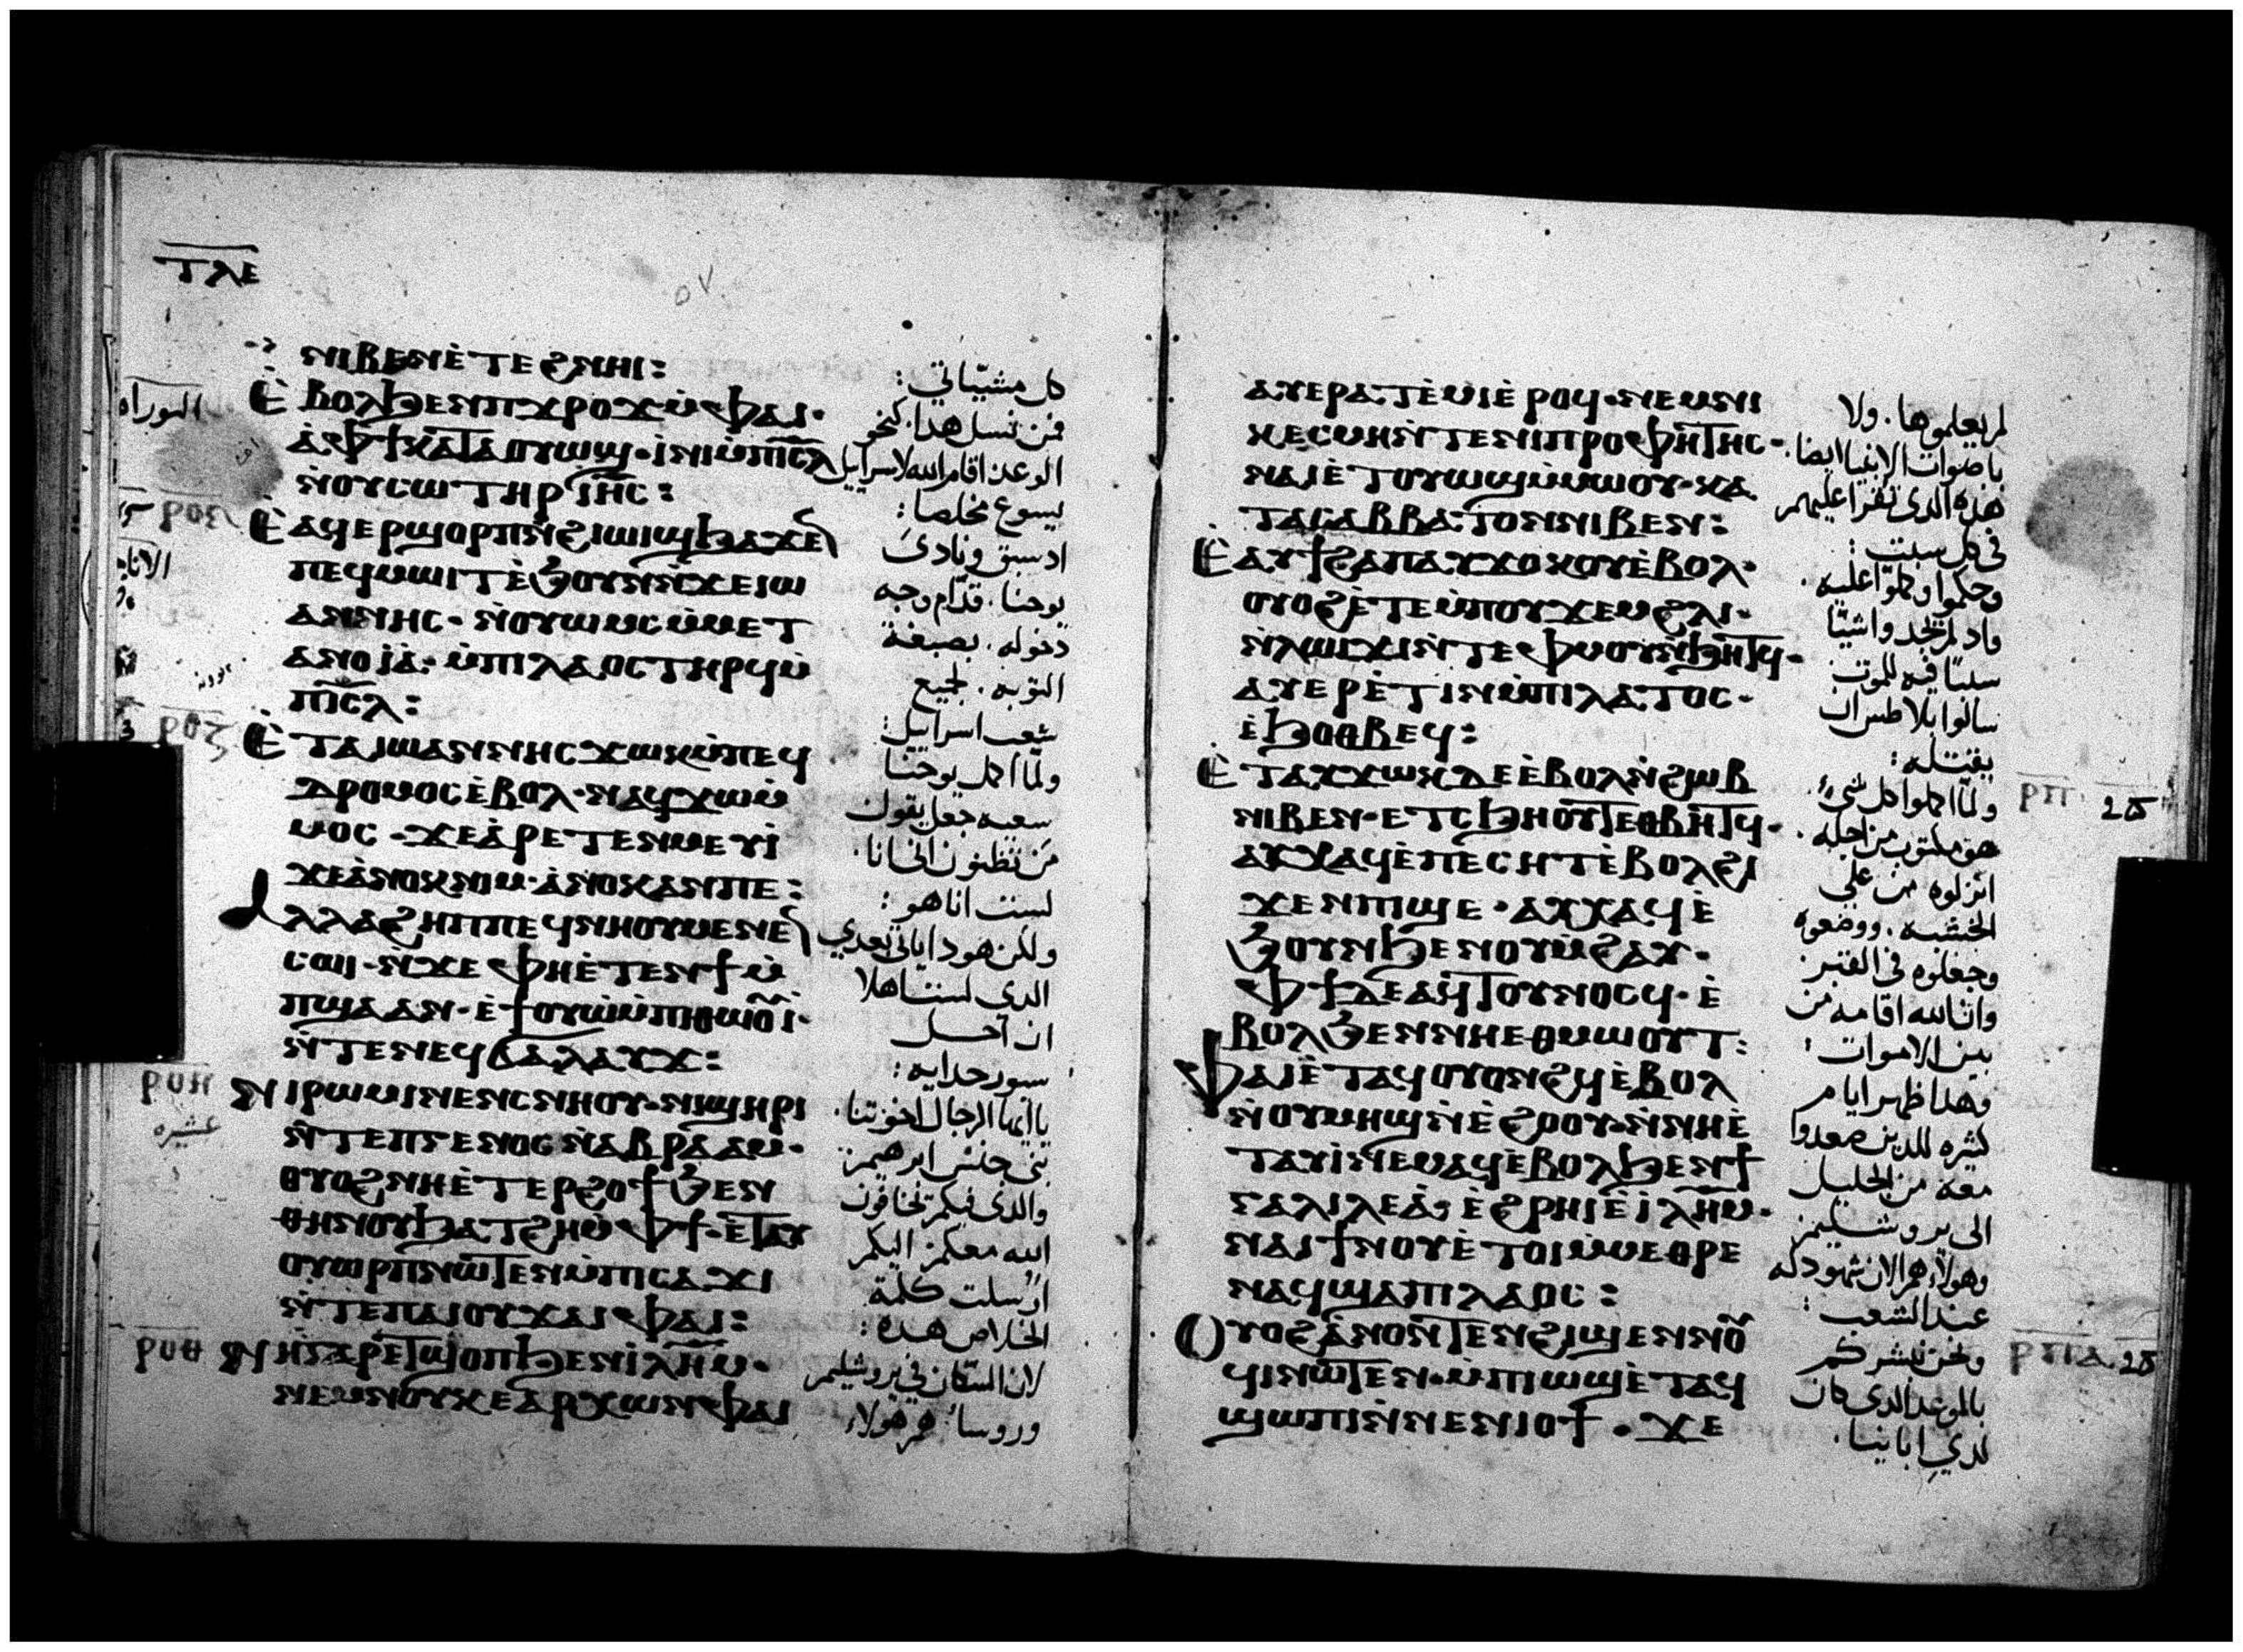 ⲧⲗⲉ
ⲛⲓⲃⲉⲛ ⲉ̀ⲧⲉϩⲛⲏⲓ:
ⲉ̀ⲃⲟⲗϧⲉⲛⲡϫⲣⲟϫ ⲙ̀ⲫⲁⲓ·
ⲁ̀ⲫϯ ⲕⲁⲧⲁ ⲟⲩⲱϣ· ⲓⲛⲓ ⲙ̀ⲡⲓⲥⲗ
ⲛ̀ⲟⲩⲥⲱⲧⲏⲣ ⲓⲏⲥ:
ⲉ̀ⲁϥⲉⲣϣⲟⲣⲡ ⲛ̀ϩⲓⲱⲓϣ ϧⲁϫⲉⲛ
ⲡⲉϥⲙⲱⲓⲧ ⲉ̀ϧⲟⲩⲛ ⲛ̀ϫⲉⲓⲱ
ⲁⲛⲛⲏⲥ· ⲛ̀ⲟⲩⲱⲙⲥ ⲙ̀ⲙⲉⲧ
ⲁⲛⲟⲓⲁ̀· ⲙ̀ⲡⲓⲗⲁⲟⲥ ⲧⲏⲣϥ ⲙ̀
ⲡⲓⲥⲗ:
ⲉ̀ⲧⲁ ⲓⲱⲁⲛⲛⲏⲥ ϫⲱⲕ ⲙ̀ⲡⲉϥ
ⲇⲣⲟⲙⲟⲥ ⲉ̀ⲃⲟⲗ· ⲛⲁϥϫⲱ ⲙ̀
ⲙⲟⲥ· ϫⲉ ⲁ̀ⲣⲉⲧⲉⲛⲙⲉⲩⲓ̀
ϫⲉ ⲁ̀ⲛⲟⲕ ⲛⲓⲙ· ⲁ̀ⲛⲟⲕ ⲁⲛ ⲡⲉ:
ⲁⲗⲗⲁ ϩⲏⲡⲡⲉ ϥⲛⲏⲟⲩ ⲙⲉⲛⲉⲛ
ⲥⲱⲓ· ⲛ̀ϫⲉ ⲫⲏ ⲉ̀ⲧⲉⲛϯⲙ̀
ⲡϣⲁ ⲁⲛ· ⲉ̀ϯⲟⲩⲱ̀ ⲙ̀ⲡⲓⲑⲱⲟⲩⲓ̀·
ⲛ̀ⲧⲉ ⲛⲉϥϭⲁⲗⲁⲩϫ:
ⲛⲓⲣⲱⲙⲓ ⲛⲉⲛⲥⲛⲏⲟⲩ· ⲛⲓϣⲏⲣⲓ
ⲛ̀ⲧⲉ ⲡⲅⲉⲛⲟⲥ ⲛ̀ⲁⲃⲣⲁⲁⲙ·
ⲟⲩⲟϩ ⲛⲏ ⲉ̀ⲧⲉⲣϩⲟϯ ϧⲉⲛ
ⲑⲏⲛⲟⲩ ϧⲁⲧϩⲏ ⲙ̀ⲫϯ· ⲉ̀ⲧⲁⲩ
ⲟⲩⲱⲣⲡ ⲛⲱⲧⲉⲛ ⲙ̀ⲡⲓⲥⲁϫⲓ
ⲛ̀ⲧⲉ ⲡⲁⲓⲟⲩϫⲁⲓ ⲫⲁⲓ:
ⲛⲏ ⲅⲁⲣ ⲉⲧϣⲟⲡ ϧⲉⲛ ⲓⲗⲏⲙ·
ⲛⲉⲙ ⲛⲟⲩⲕⲉⲁⲣⲭⲱⲛ ⲫⲁⲓ
كل مشيّاتي:
فمن نسل هذا. كنحو
الوعد اقام الله لاسراييل
يسوع مخلصا:
اد سبق ونادى
يوحنا. قدّام وجه
دخوله. بصبغة
التوبه. لجميع
شعب اسراييل:
ولمّا اكمل يوحنا
سعيه جعل يقول
من تظنون اني انا.
لست انا هو:
ولكن هودا ياتي بعدي
الدى لست اهلا
ان احل
سيور حدايه:
يا ايها الرجال اخوتنا.
بني جنس ابرهيم:
والدى فيكم تخافون
الله معكم: اليكم
ارسلت كلمة
الخلاص هده:
لان السكان في يروشليم
وروسا هم هولاء
التوراه
ⲣⲟⲍ
ⲣⲟⲏ
عشره
ⲣⲟⲑ
ⲁⲩⲉⲣⲁⲧⲉ̀ⲙⲓ ⲉ̀ⲣⲟϥ· ⲛⲉⲙ ⲛⲓ
ⲕⲉⲥⲙⲏ ⲛ̀ⲧⲉ ⲛⲓⲡⲣⲟⲫⲏⲧⲏⲥ·
ⲛⲁⲓ ⲉ̀ⲧⲟⲩⲱϣ ⲙ̀ⲙⲱⲟⲩ· ⲕⲁ
ⲧⲁ ⲥⲁⲃⲃⲁⲧⲟⲛ ⲛⲓⲃⲉⲛ:
ⲉ̀ⲁⲩϯϩⲁⲡ ⲁⲩϫⲟⲕⲟⲩ ⲉ̀ⲃⲟⲗ·
ⲟⲩⲟϩ ⲉ̀ⲧⲉ ⲙ̀ⲡⲟⲩϫⲉⲙ ϩⲗⲓ·
ⲛ̀ⲗⲱⲓϫⲓ ⲛ̀ⲧⲉ ⲫⲙⲟⲩ ⲛ̀ϧⲏⲧϥ·
ⲁⲩⲉⲣⲉ̀ⲧⲓⲛ ⲙ̀ⲡⲓⲗⲁⲧⲟⲥ·
ⲉ̀ϧⲟⲑⲃⲉϥ:
ⲉ̀ⲧⲁⲩϫⲱⲕ ⲇⲉ ⲉ̀ⲃⲟⲗ ⲛ̀ϩⲱⲃ
ⲛⲓⲃⲉⲛ· ⲉⲧⲥϧⲏⲟⲩⲧ ⲉⲑⲃⲏⲧϥ·
ⲁⲩⲭⲁϥ ⲉ̀ⲡⲉⲥⲏⲧ ⲉ̀ⲃⲟⲗϩⲓ
ϫⲉⲛ ⲡⲓϣⲉ· ⲁⲩⲭⲁϥ ⲉ̀
ϧⲟⲩⲛ ϧⲉⲛ ⲟⲩⲙ̀ϩⲁⲩ·
ⲫϯ ⲇⲉ ⲁϥⲧⲟⲩⲛⲟⲥϥ· ⲉ̀
ⲃⲟⲗϧⲉⲛ ⲛⲏⲉⲑⲙⲱⲟⲩⲧ:
ⲫⲁⲓ ⲉ̀ⲧⲁϥⲟⲩⲟⲛϩϥ ⲉ̀ⲃⲟⲗ
ⲛ̀ⲟⲩⲙⲏϣ ⲛ̀ⲉ̀ϩⲟⲟⲩ· ⲛ̀ⲛⲏⲉ̀
ⲧⲁⲩⲓ̀ ⲛⲉⲙⲁϥ ⲉ̀ⲃⲟⲗϧⲉⲛ ϯ
ⲅⲁⲗⲓⲗⲉⲁ̀· ⲉ̀ϩⲣⲏⲓ ⲉ̀ⲓⲗⲏⲙ·
ⲛⲁⲓ ϯⲛⲟⲩ ⲉ̀ⲧⲟⲓ ⲙ̀ⲙⲉⲑⲣⲉ
ⲛⲁϥ ϣⲁ ⲡⲓⲗⲁⲟⲥ:
ⲟⲩⲟϩ ⲁ̀ⲛⲟⲛ ⲧⲉⲛϩⲓϣⲉⲛⲛⲟⲩ
ϥⲓ ⲛⲱⲧⲉⲛ· ⲙ̀ⲡⲓⲱϣ ⲉ̀ⲧⲁϥ
ϣⲱⲡⲓ ⲛ̀ⲛⲉⲛⲓⲟϯ· ϫⲉ
لم يعلموها. ولا
باصوات الانبيا ايضا.
هذه الدى تقرا عليهم
في كل سبت:
وحكموا وكملوا عليه.
واد لم يجدوا شيّا
سببًا فيه للموت
سالوا بيلاطس ان
يقتله:
ولمّا اكملوا كل شي
هو مكتوب من اجله.
انزلوه من على
الخشبه. ووضعوه
وجعلوه في القبر:
وان الله اقامه من
بين الاموات:
وهدا ظهر ايام
كثيره للدين صعدوا
معه من الجليل
الى يروشليم:
وهولاء هم الان شهود له
عند الشعب:
ونحن نبشركم
بالموعد الدى كان
لدي ابايينا.
ⲣⲡ
ⲣⲡⲁ